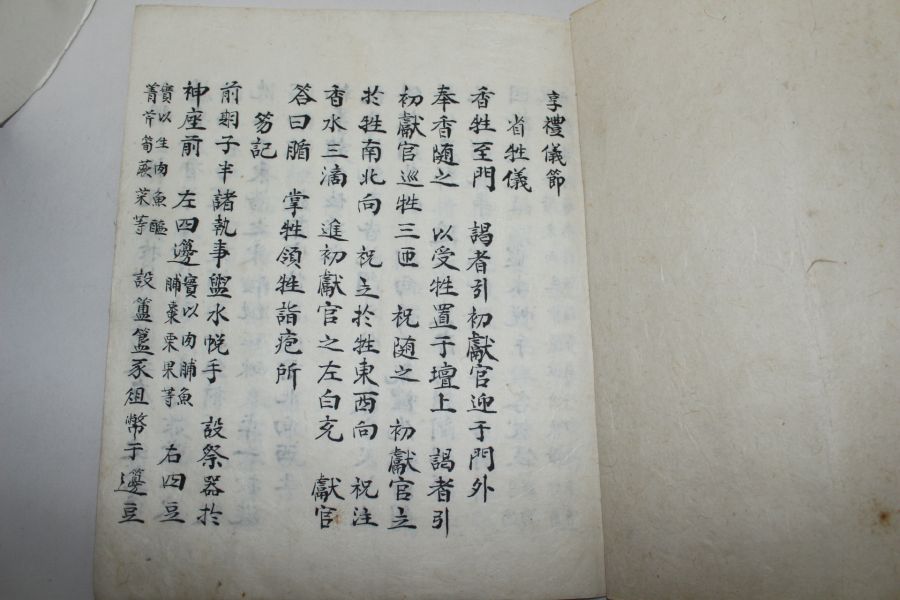 享禮儀節
省牲儀
香牲至門 謁者引初獻官迎于門外
奉香隨之 以受牲置于壇上 謁者引
初獻官巡牲三匝 祝隨之 初獻官立
於牲南北向 祝立於牲東西向 祝注
香水三滴 進初獻官之左白充 獻官
答曰腯 掌牲領牲詣庖所
笏記
前期子半諸執事盥水帨手 設祭器於
神座前 左四籩實以肉脯魚脯棗栗果等 右四豆
實以生肉魚醢菁芹蕨菜等 設簠簋豕俎幣于籩豆